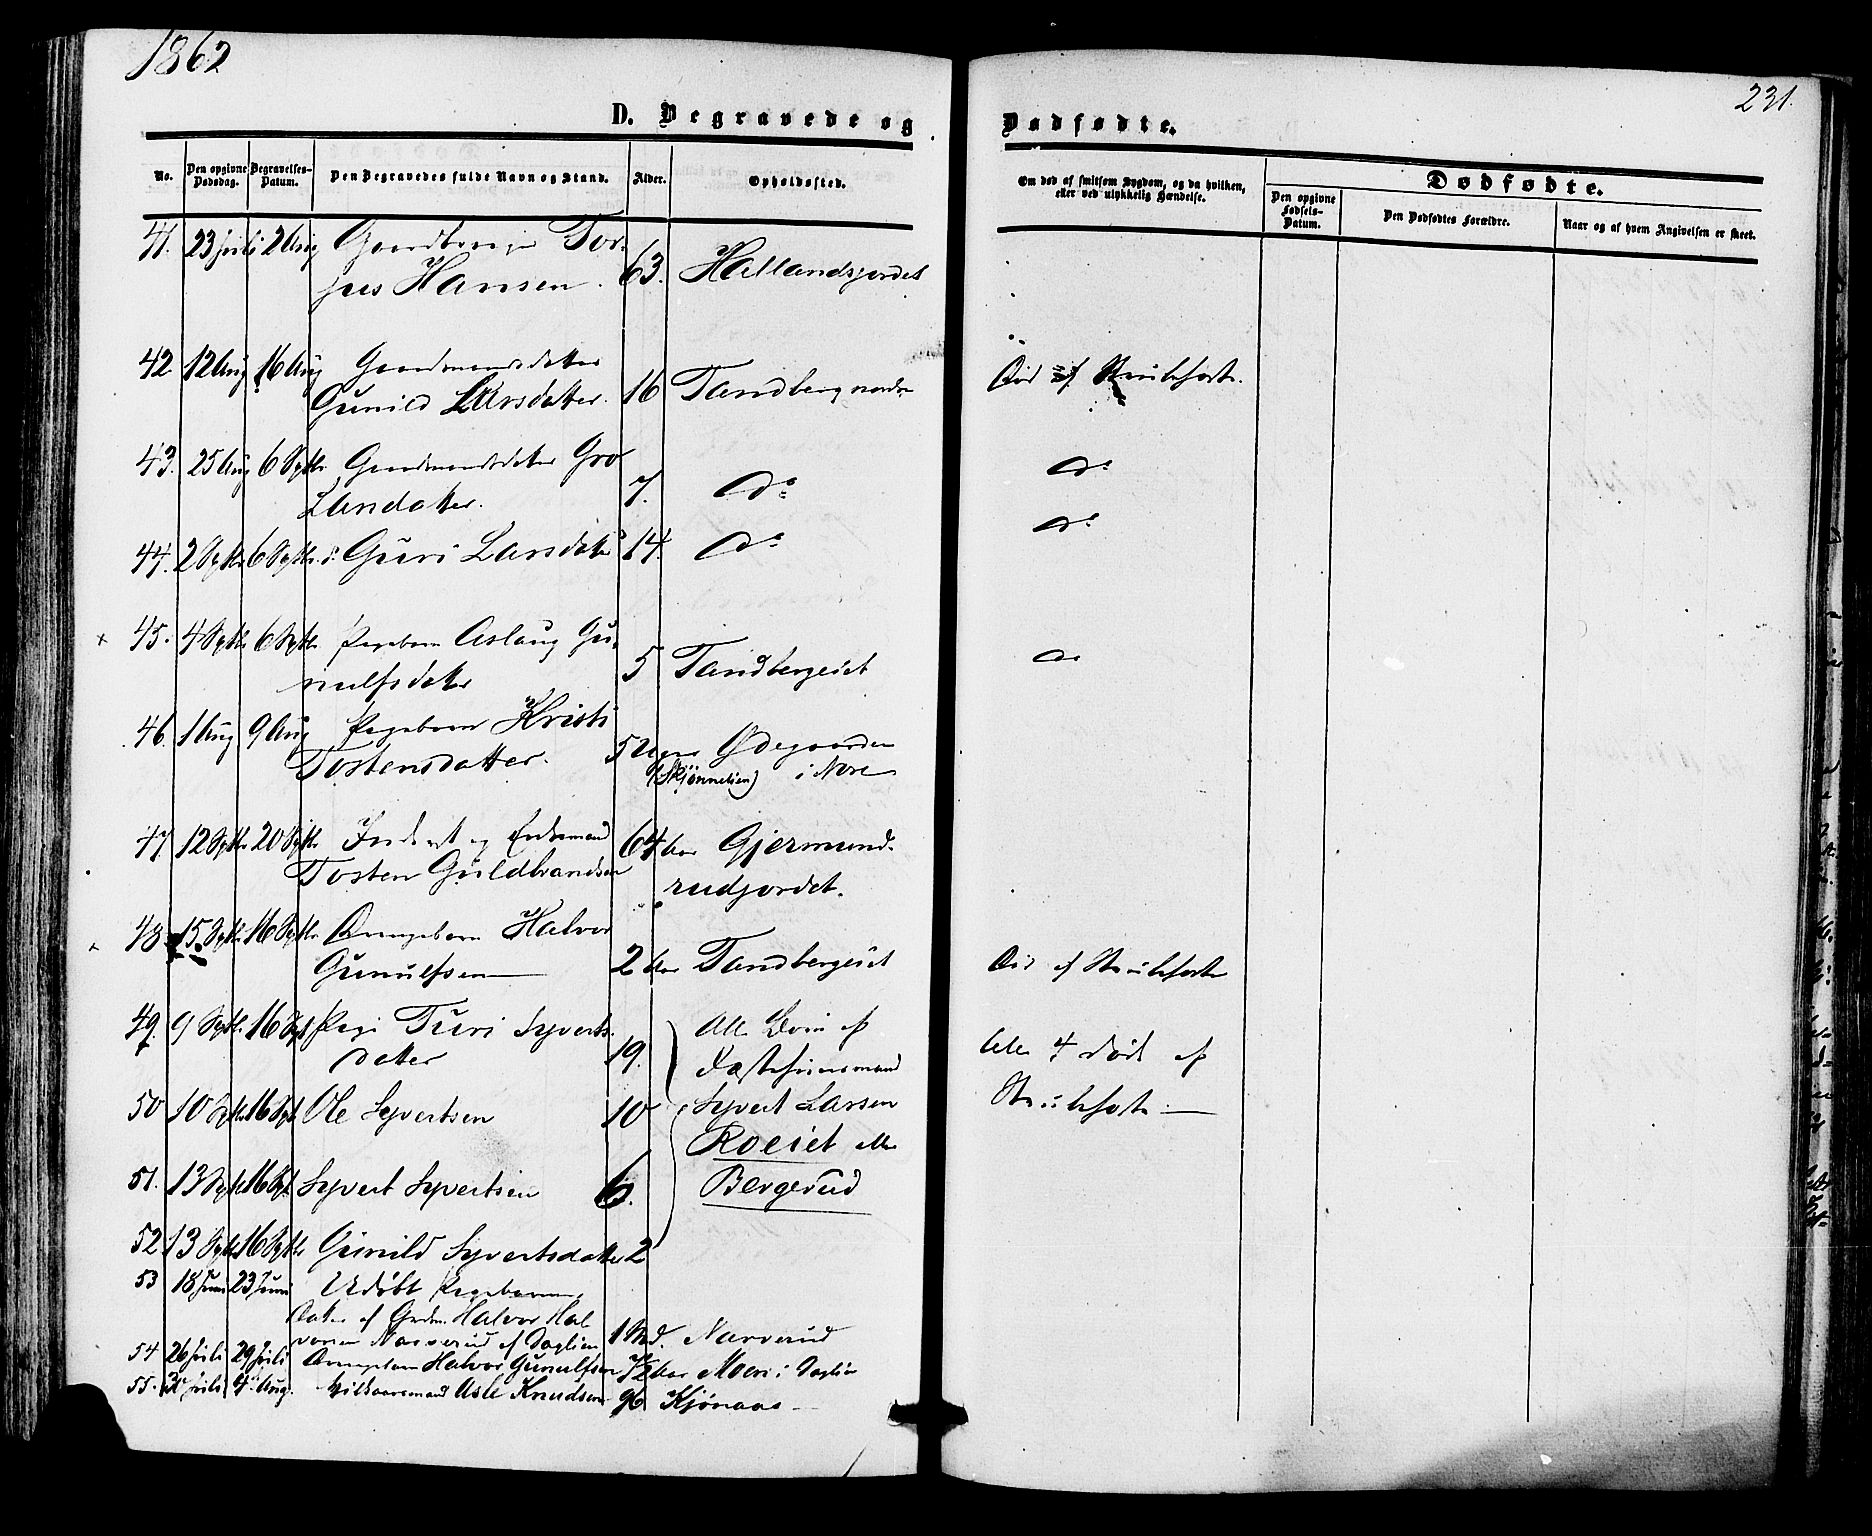 1862
231.
D. Begravede og Dødfødte.
No. Den opgivne Dødsdag. Begravelses-Datum. Den Begravedes fulde Navn og Stand. Alder. Opholdssted. Om død af smitsom Sygdom, og da hvilken, eller ved ulykkelig Hændelse.
Dødfødte.
Den opgivne Fødsels-Datum. Den Dødfødtes Forældre. Naar og af hvem Angivelsen er skeet.
41. 23 Juli 2 Aug Tor-
jus Hansen. 63. Hallandsjordet
42 12 Aug 16 Aug Gaardmandsdatter
Gunild Larsdatter. 16 Tandberg nordre Død af Strubehoste.
43. 25 Aug 6 Septbr Gaardmandsdatter Gro
Larsdatter. 7. do do
44. 2 Septbr 6 Septbr Guri Larsdatter 14. do do
45. 4 Septbr 6 Septbr Pigebarn Aslaug Gu-
nulfsdatter 5 Tandbergeiet do
46. 1 Aug 9 Aug Pigebarn Kristi
Tostensdatter. 5 Uger Ødegaarden
(Skjønnelien) i Nore
47 12 Septbr 20 Septbr Inderst og Enkemand
Tosten Guldbrandsen 64 Aar Gjermund-
rudjordet.
48 15 Septbr 16 Septbr Drengebarn Halvor
Gunulfsen 2 Aar Tandbergeiet Død af Strubehoste
49. 9 Septbr 16 Sept Pige Turi Syverts-
datter 19. Alle Børn af
Fæstehuusmand
Alle 4 døde af
50 10 Septbr 16 Sept Ole Syvertsen 10 Syvert Larsen
Strubehoste
Roeiet eller
51. 13 Septbr 16 Sept. Syvert Syvertsen 6. Bergerud
52 13 Septbr 16 Septbr Gunild Syvertsdatter 2
53 18 Juni 23 Juni Udøbt Pigebarn,
Datter af Grdm. Halvor Hal-
vorsen Narverud af 1 Md. Narverud
54 26 Juli 29 Juli Drengebarn Halvor Gunulfsen 1/2 Aar Moen i
55. Juli 4 Aug. Asle Knudsen 96 Kjønaas